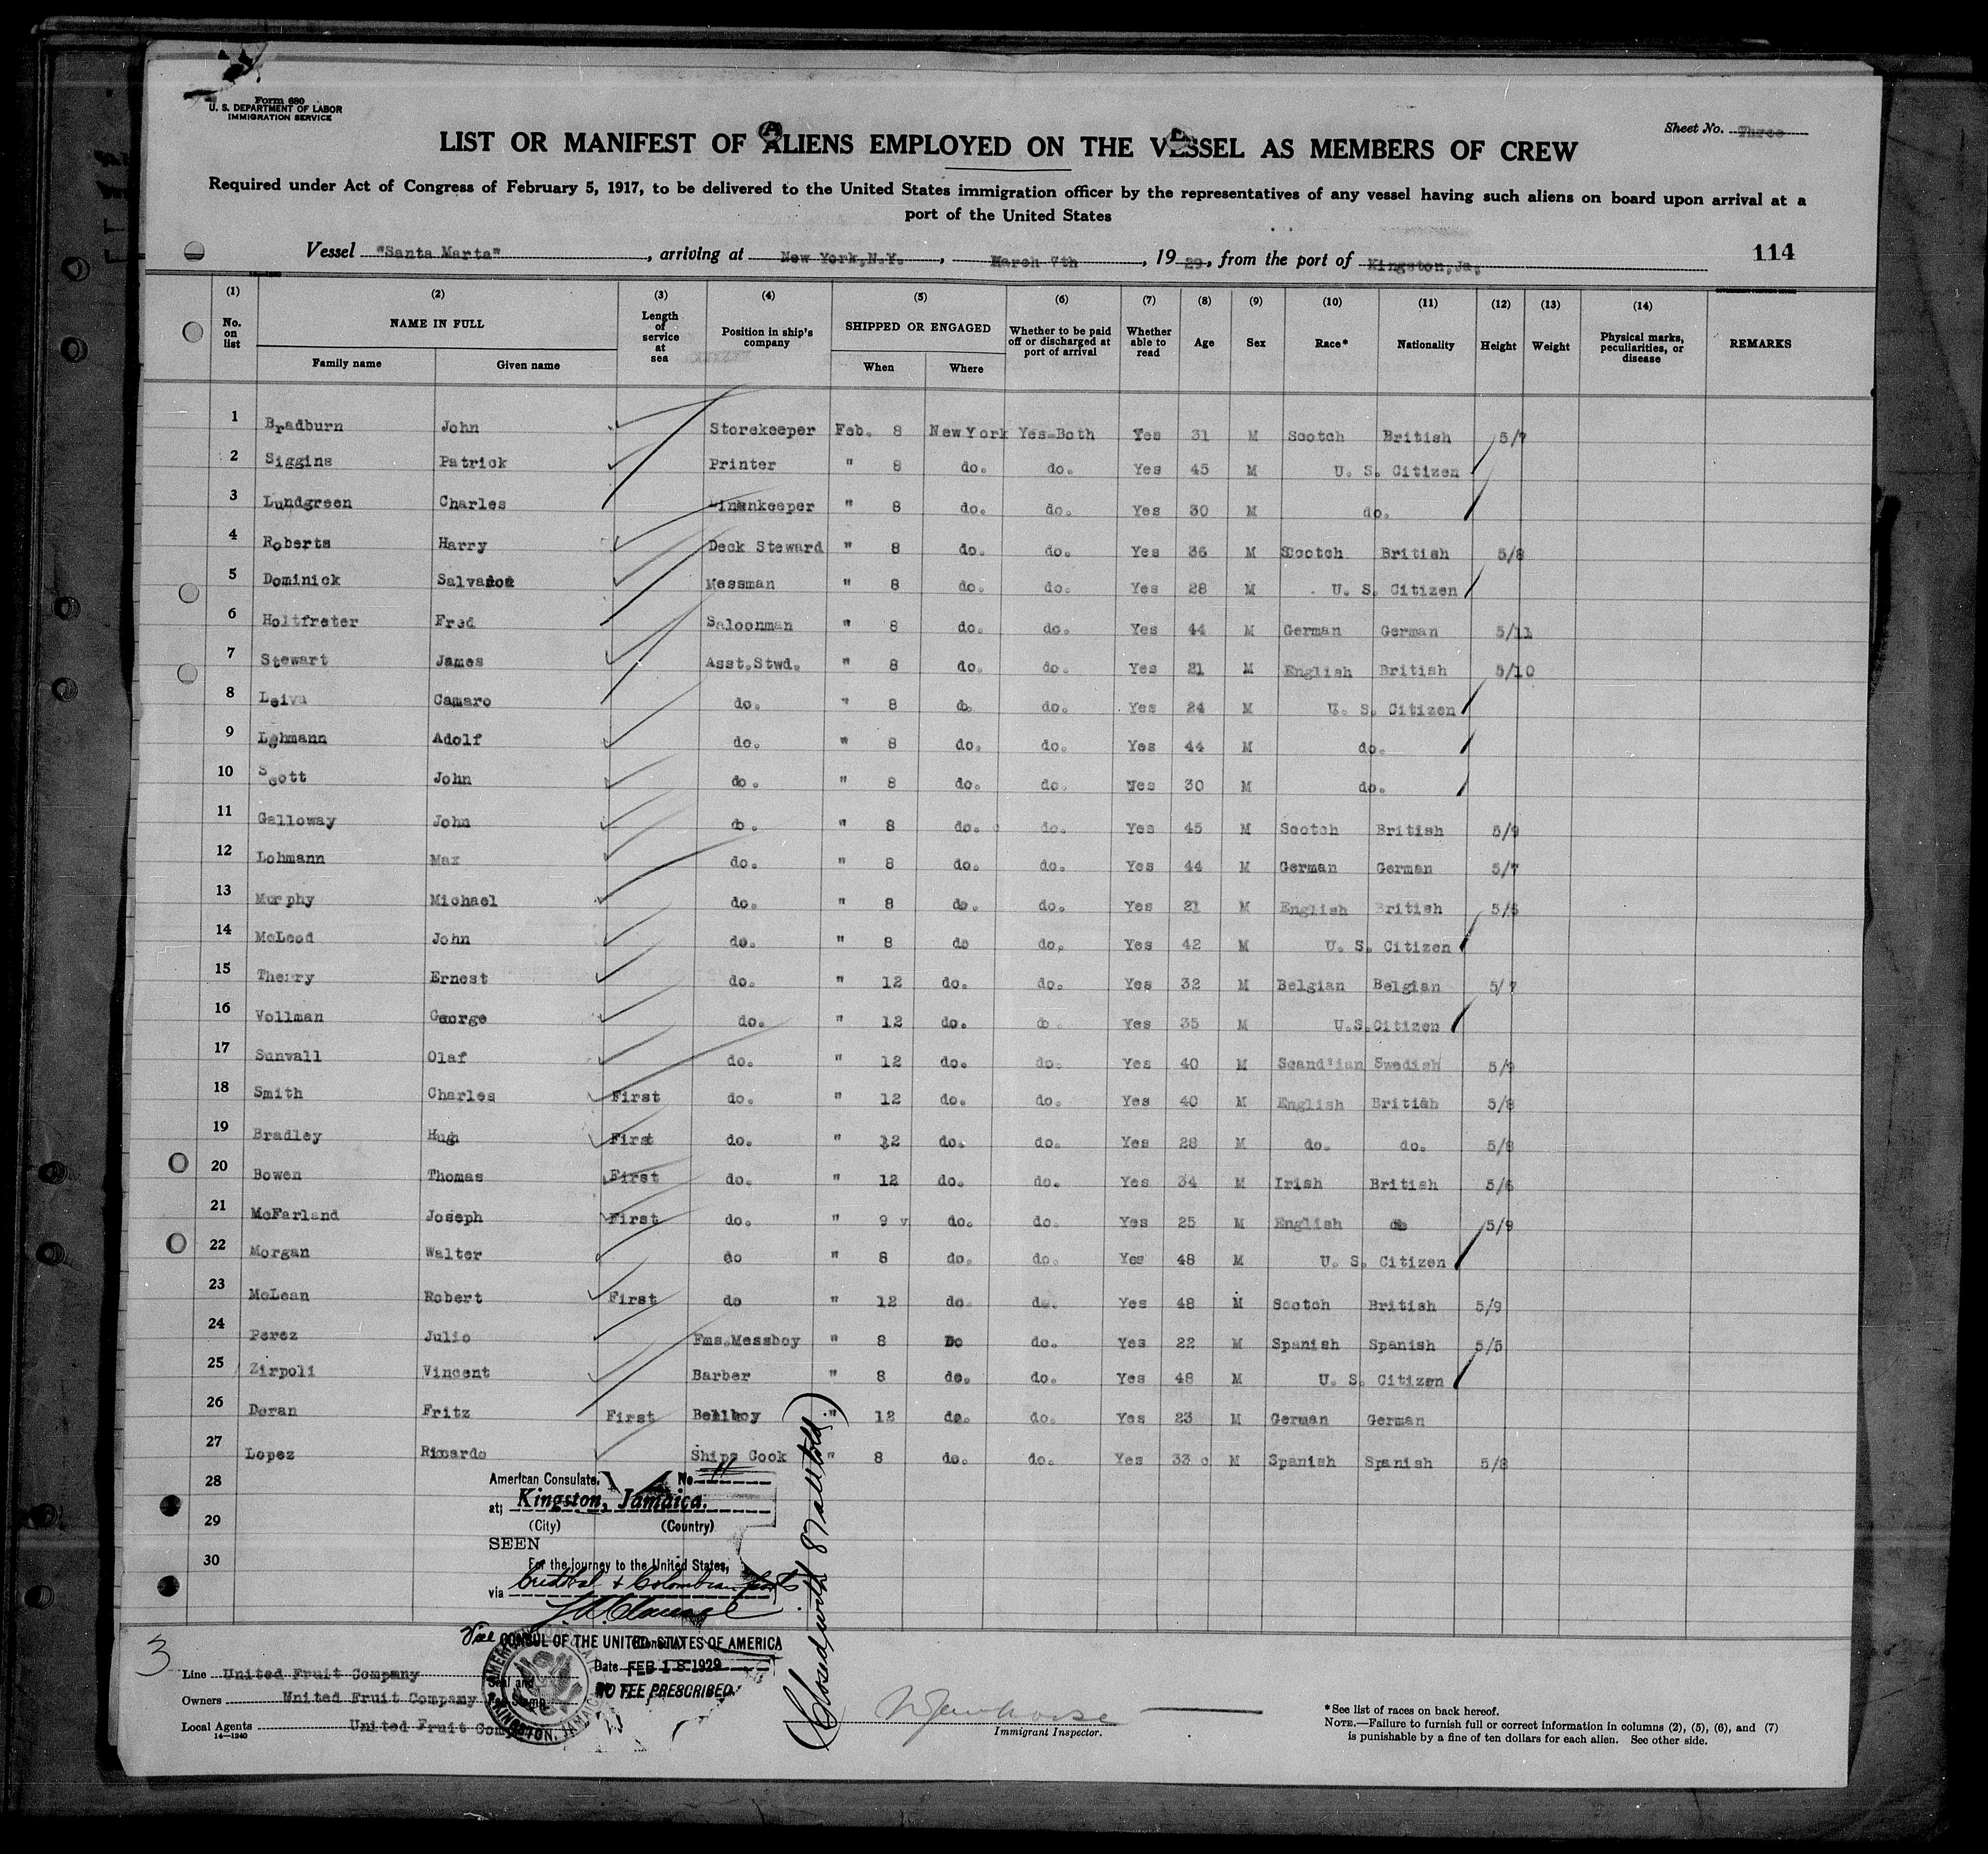 Form 680
U. S. DEPARTMENT OF LABOR
IMMIGRATION SERVICE
Sheet No. Three
LIST OR MANIFEST OF ALIENS EMPLOYED ON THE VESSEL AS MEMBERS OF CREW
Required under Act of Congress of February 5, 1917, to be delivered to the United States immigration officer by the representatives of any vessel having such aliens on board upon arrival at a
port of the United States
Vessel "Santa Marta", arriving at New York, N.Y., March 7th, 1929, from the port of Kingston, Ja. 114
(1) (2) (3) (4) (5) (6) (7) (8) (9) (10) (11) (12) (13) (14)
No. on list NAME IN FULL Length of service at sea Position in ship's company SHIPPED OR ENGAGED Whether to be paid off or discharged at port of arrival Whether able to read Age Sex Race* Nationality Height Weight Physical marks, peculiarities, or disease REMARKS
Family name Given name When Where
1 Bradburn John Storekeeper Feb. 8 New York Yes-Both Yes 31 M Scotch British 5/7
2 Siggins Patrick Printer " 8 do. do. Yes 45 M U. S. Citizen
3 Lundgreen Charles Linenkeeper " 8 do. do. Yes 30 M do.
4 Roberts Harry Deck Steward " 8 do. do. Yes 36 M Scotch British 5/8
5 Dominick Salvador Messman " 8 do. do. Yes 28 M U. S. Citizen
6 Holtfreter Fred Saloonman " 8 do. do. Yes 44 M German German 5/11
7 Stewart James Asst. Stwd. " 8 do. do. Yes 21 M English British 5/10
8 Leiva Camaro do. " 8 do do. Yes 24 M U. S. Citizen
9 Lehmann Adolf do. " 8 do. do. Yes 44 M do.
10 Scott John do. " 8 do. do. Yes 30 M do.
11 Galloway John do. " 8 do. do. Yes 45 M Scotch British 5/9
12 Lohmann Max do. " 8 do. do. Yes 44 M German German 5/7
13 Murphy Michael do. " 8 do. do. Yes 21 M English British 5/5
14 McLeod John do. " 8 do do. Yes 42 M U. S. Citizen
15 Therry Ernest do. " 12 do. do. Yes 32 M Belgian Belgian 5/7
16 Vollman George do. " 12 do. do. Yes 35 M U.S. Citizen
17 Sunvall Olaf do. " 12 do. do. Yes 40 M Scand'ian Swedish 5/9
18 Smith Charles First do. " 12 do. do. Yes 40 M English British 5/8
19 Bradley Hugh First do. " 12 do. do. Yes 28 M do. do. 5/8
20 Bowen Thomas First do. " 12 do. do. Yes 34 M Irish British 5/6
21 McFarland Joseph First do. " 9 do. do. Yes 25 M English do 5/9
22 Morgan Walter do " 8 do. do. Yes 48 M U. S. Citizen
23 McLean Robert First do " 12 do do. Yes 48 M Scotch British 5/9
24 Perez Julio Fms. Messboy " 8 Do do. Yes 22 M Spanish Spanish 5/5
25 Zirpoli Vincent Barber " 8 do. do. Yes 48 M U. S. Citizen
26 Doran Fritz First Bellboy " 12 do. do. Yes 23 M German German
27 Lopez Ricardo Ships Cook " 8 do. do. Yes 33 M Spanish Spanish 5/8
28
29
30
American Consulate, No. 11
at; Kingston, Jamaica.
(City) (Country)
SEEN
For the journey to the United States,
via Cristobal & Colombian ports
Vice CONSUL OF THE UNITED STATES OF AMERICA
Date FEB 18 1929
NO FEE PRESCRIBED
(Closed with 87 all told.)
3
Line United Fruit Company
Owners United Fruit Company
Local Agents United Fruit Company
14—1240
Immigrant Inspector.
*See list of races on back hereof.
NOTE.—Failure to furnish full or correct information in columns (2), (5), (6), and (7)
is punishable by a fine of ten dollars for each alien. See other side.